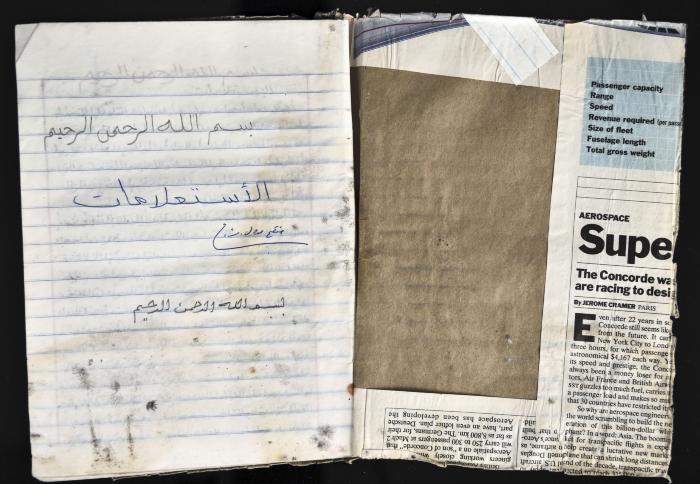 بسم الله الرحمن الرحيم
الأستعلامات
بسم الله الرحمن الرحيم
Passenger capacity
Range
Speed
Revenue required (per pass
Size of fleet
Fuselage length
Total gross weight
AEROSPACE
Supe
The Concorde wa
are racing to desi
By JEROME CRAMER PARIS
Even, after 22 years in se
Concorde still seems like
from the future. It car
New York City to Lond
three hours, for which passenge
astronomical $4,167 each way. Y
its speed and prestige, the Conc
always been a money loser for
tors, Air France and British Airw
SST guzzles too much fuel, carries
a passenger load and makes so mu
that 30 countries have restricted it
So why are aerospace engineers
the world scrambling to build the ne
eration of this billion-dollar
phant? In a word: Asia. The boom
ket for transpacific flights is expe
help create a lucrative new mark
planes that can shrink long distances
end of the decade, transpacific tra
gineers working closely
Aérospatiale on a "son of Concorde" that
will carry 250 to 300 passengers at Mach 2
as far as 8,800 km. The Germans, for their
part, have an even bolder plan: Deutsche
Aerospace has been developing the